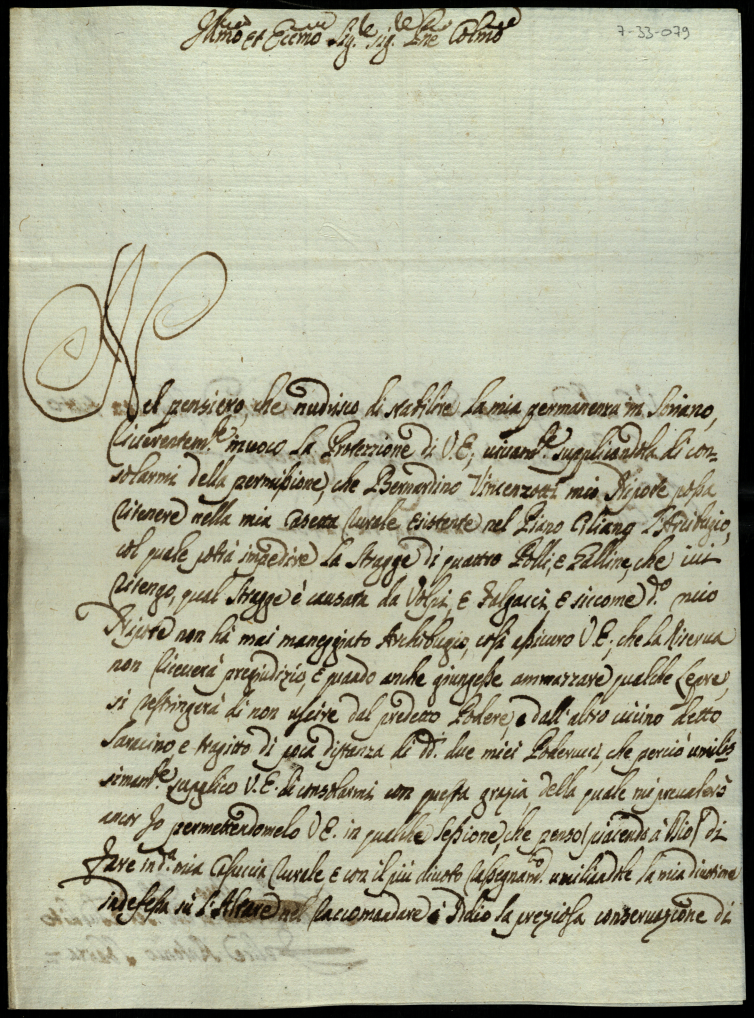 7-33-079
Ill.mo et Ecc.mo Sig.re Sig.re P.ne Col.mo
Nel pensiero, che nudrisco di stabilire la mia permanenza in Soriano,
riverentem.te invoco la Protezzione di V. E., supplicandola di con-
solarmi della permissione, che Bernardino Vincenzotti mio Nipote possa
ritenere nella mia Casetta rurale esistente nel Piano Ciliano l'Archibugio,
col quale potrà impedire la Stragge di quattro Polli, e Galline, che ivi
ritengo, qual Stragge è causata da Volpi, e Falgacci, e siccome d.o mio
Nipote non hà mai maneggiato Archibugio, così assicuro V. E., che la Riserva
non riceverà pregiudizio, e quando anche giungesse ammazzare qualche Lepre,
si restringerà di non uscire dal predetto Podere, e dall'altro vicino detto
Saracino, e tragitto di poca distanza di d.i due miei Poderucci, che perciò umilis
simam.te supplico V. E. di consolarmi con questa grazia, della quale mi prevalerò
ancor Io permettendomelo V. E. in qualche Sessione, che penso (piacendo à Dio) di
fare in d.a mia Casuccia rurale, e con il più divoto rassegnam.o umiliandole la mia
indefessa sù l'Altare nel raccomandare à Iddio la preziosa conservazione di